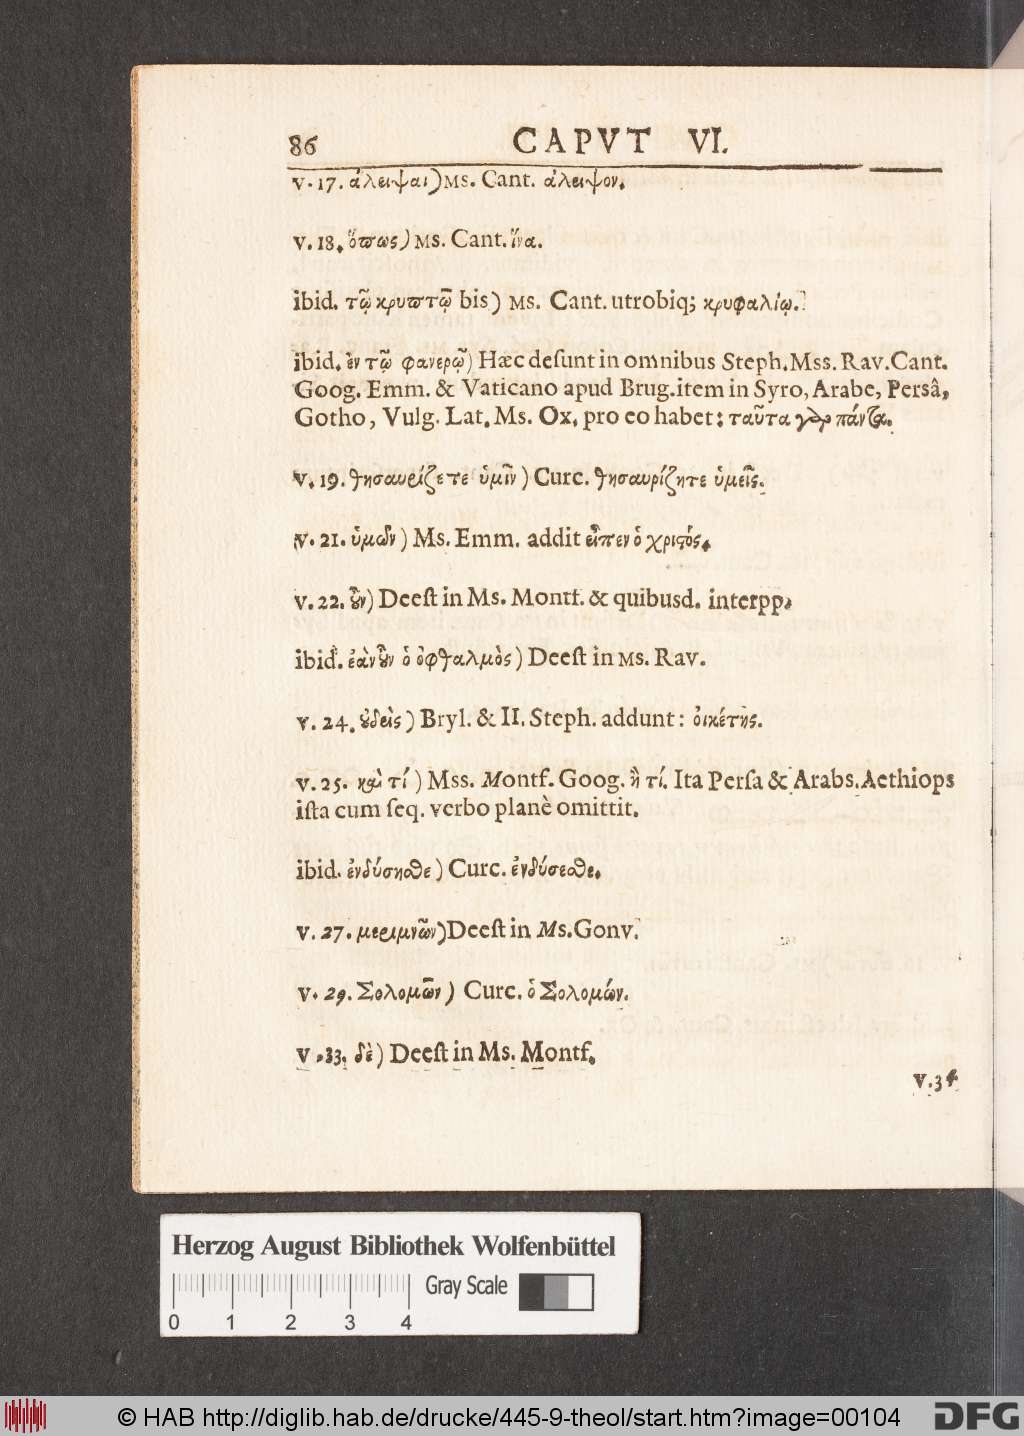 86 CAPVT VI.
v. 17. ἀλειψαι) Ms. Cant. ἀλειψον.
v. 18. ὅπως) Ms. Cant. ἵνα.
ibid. τῷ κρυπτῷ bis) Ms. Cant. utrobiq; κρυφαλίῳ.
ibid. ἐν τῷ φανερῷ) Hæc deſunt in omnibus Steph. Mss. Rav. Cant.
Goog. Emm. & Vaticano apud Brug. item in Syro, Arabe, Persâ,
Gotho, Vulg. Lat. Ms. Ox. pro eo habet: ταῦτα γὰρ πάντα.
v. 19. θησαυρίζετε ὑμῖν) Curc. θησαυρίζητε ὑμεῖς.
v. 21. ὑμῶν) Ms. Emm. addit εἶπεν ὁ χριϛός.
v. 22. ȣ̓͂ν) Deeſt in Ms. Montf. & quibusd. interpp.
ibid. ἐὰν ȣ̓͂ν ὁ ὀφθαλμὸς) Deeſt in Ms. Rav.
v. 24. ȣ̓δεὶς) Bryl. & II. Steph. addunt: οἰκέτης.
v. 25. καὶ τί) Mss. Montf. Goog. ἢ τί. Ita Perſa & Arabs. Aethiops
iſta cum ſeq. verbo planè omittit.
ibid. ἐνδύσησθε) Curc. ἐνδύσεσθε.
v. 27. μεριμνῶν) Deeſt in Ms. Gonv.
v. 29. Σολομῶν) Curc. ὁ Σολομών.
v. 33. δὲ) Deeſt in Ms. Montf.
v. 34
Herzog August Bibliothek Wolfenbüttel
Gray Scale
0 1 2 3 4
© HAB http://diglib.hab.de/drucke/445-9-theol/start.htm?image=00104
DFG